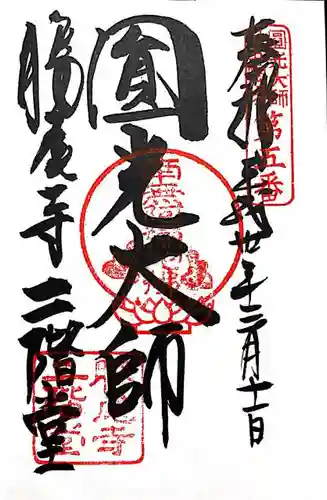 圓光大師第五番
奉拝 平成廿年十二月十一日
圓光大師
勝尾寺 二階堂
勝尾寺
二階堂